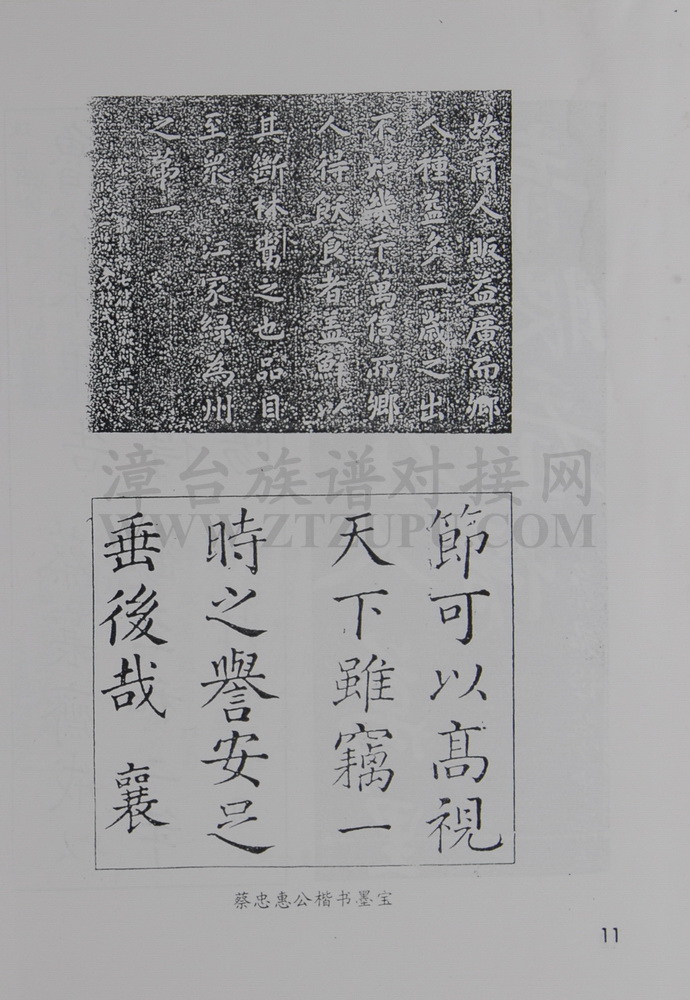 故商人販益廣而鄉
人種益多一歲之出
不知幾千萬億而鄉
人得飫食者蓋鮮以
其斷林鬻之也品目
至衆江家綠為州
之第一
漳台族谱对接网
WWW.ZTZUPU.COM
節可以高視
天下雖竊一
時之譽安足
垂後哉 襄
蔡忠惠公楷书墨宝
11